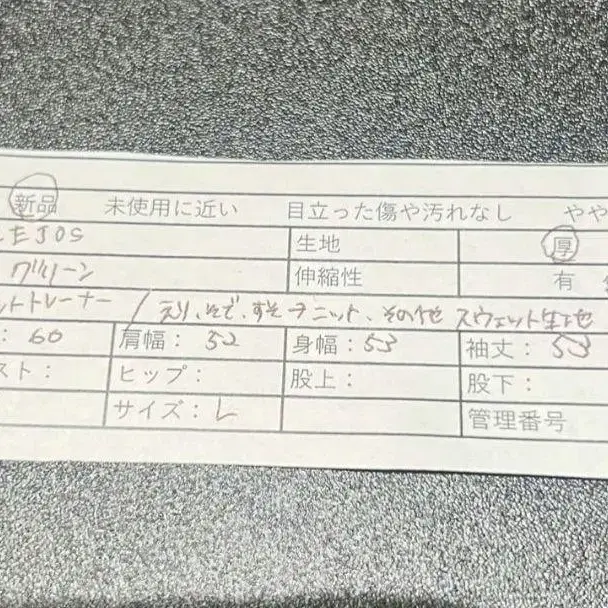 新品 未使用に近い 目立った傷や汚れなし やや
LEJOS 生地 厚
グリーン 伸縮性 有
ットトレーナー / えり、そで、すそ→ニット、その他 スウェット生地
: 60 肩幅: 52 身幅: 53 袖丈: 53
スト: ヒップ: 股上: 股下:
サイズ: L 管理番号